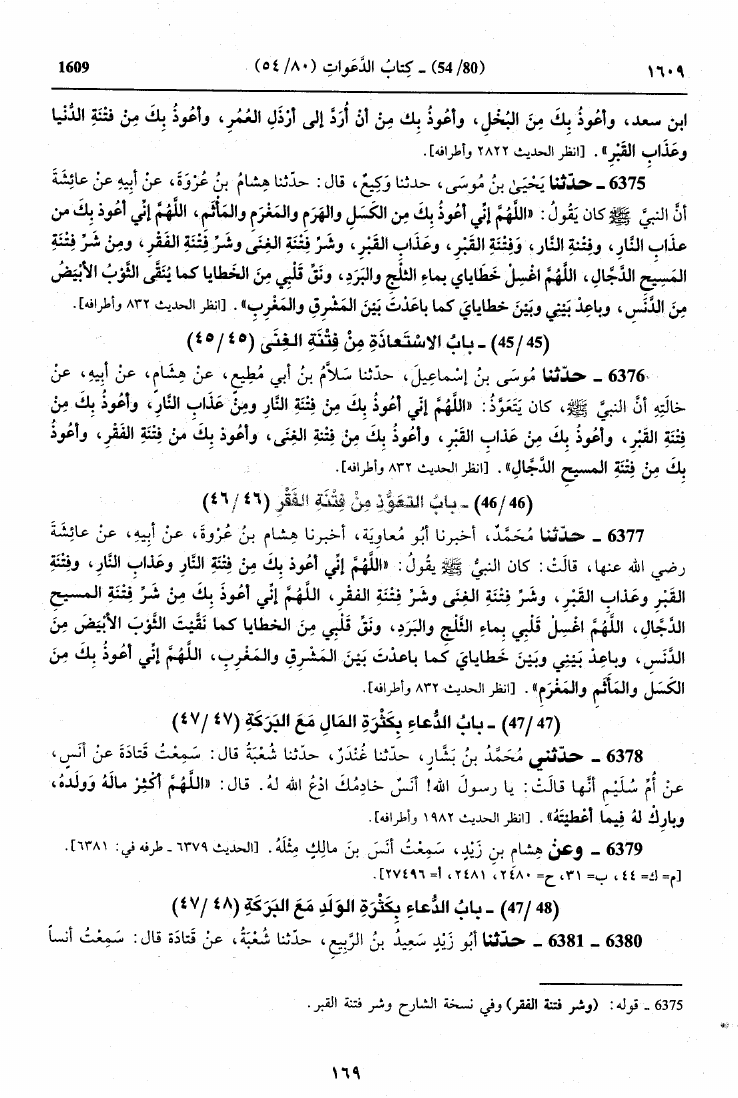 ١٦٠٩ (54/80) ـ كِتَابُ الدَّعَواتِ (٥٤/٨٠) 1609
ابن سعد، وأعُوذُ بِكَ مِنَ البُخْلِ، وأعُوذُ بِكَ مِنْ أنْ أُرَدَّ إلى أرْذَلِ العُمُرِ، وأعُوذُ بِكَ مِنْ فتْنَةِ الدُّنْيا
وعَذَابِ القَبْرِ». [انظر الحديث ٢٨٢٢ وأطرافه].
6375 ـ حدّثنا يَحْيَىٰ بنُ مُوسَى، حدثنا وَكِيعٌ، قال: حدّثنا هِشامُ بنُ عُرْوَةَ، عنْ أبِيهِ عنْ عائِشَةَ
أنَّ النبيَّ ﷺ كان يَقُولُ: «اللَّهُمَّ إنِّي أعُوذُ بِكَ مِنَ الكَسَلِ والهَرَمِ والمَغْرَمِ والمَأْثَمِ، اللَّهُمَّ إنِّي أعُوذُ بِكَ من
عذابِ النَّارِ، وفِتْنةِ النَّار، وَفِتْنَةِ القَبْرِ، وعَذَابِ القَبْرِ، وشَرِّ فِتْنَةِ الغِنَى وشَرِّ فِتْنَةِ الفَقْرِ، ومِنْ شَرِّ فِتْنَةِ
المَسِيحِ الدَّجَّالِ، اللَّهُمَّ اغْسِلْ خَطَايايَ بِماءِ الثَّلْجِ والبَرَدِ، ونَقِّ قَلْبِي مِنَ الخَطايا كما يُنَقَّى الثَّوْبُ الأبْيَضُ
مِنَ الدَّنَسِ، وباعِدْ بَيْنِي وبَيْنَ خطايايَ كما باعَدْتَ بَيْنَ المَشْرِقِ والمَغْرِبِ». [انظر الحديث ٨٣٢ وأطرافه].
(45/45) ـ بابُ الاسْتَعاذَةِ مِنْ فِتْنَةِ الغِنَى (٤٥/٤٥)
6376 ـ حدّثنا مُوسَى بنُ إسْماعِيلَ، حدثنا سَلاَّمُ بنُ أبي مُطِيعٍ، عنْ هِشَامٍ، عنْ أبِيهِ، عنْ
خالَتِهِ أنَّ النبيَّ ﷺ، كان يَتَعَوَّذُ: «اللَّهُمَّ إنِّي أعُوذُ بِكَ مِنْ فِتْنَةِ النَّارِ ومِنْ عَذَابِ النَّارِ، وأعُوذُ بِكَ مِنْ
فِتْنَةِ القَبْرِ، وأعُوذُ بِكَ مِنْ عَذابِ القَبْرِ، وأعُوذُ بِكَ مِنْ فِتْنةِ الغِنَى، وأعُوذ بِكَ منْ فِتْنَةِ الفَقْرِ، وأعُوذُ
بِكَ مِنْ فِتْنَةِ المسيحِ الدَّجَّالِ». [انظر الحديث ٨٣٢ وأطرافه].
(46/46) ـ بابُ التعَوُّذِ مِنْ فِتْنَةِ الفَقْرِ (٤٦/٤٦)
6377 ـ حدّثنا مُحَمَّدٌ، أخبرنا أبُو مُعاوِيَةَ، أخبرنا هِشام بنُ عُرْوةَ، عنْ أبِيهِ، عنْ عائِشَةَ
رضي الله عنها، قالَتْ: كان النبيُّ ﷺ يقُولُ: «اللَّهُمَّ إنِّي أعُوذ بِكَ مِنْ فِتْنَةِ النَّارِ وعَذَابِ النَّارِ، وفِتْنَةِ
القَبْرِ وعَذابِ القَبْرِ، وشَرِّ فِتْنَةِ الغِنَى وشَرِّ فِتْنَةِ الفقرِ، اللَّهُمَّ إنِّي أعُوذُ بِكَ مِنْ شَرِّ فِتْنَةِ المسيحِ
الدَّجَّالِ، اللَّهُمَّ اغْسِلْ قَلْبِي بِماءِ الثَّلْجِ والبَرَدِ، ونَقِّ قَلْبِي مِنَ الخطايا كما نَقَّيْتَ الثَّوْبَ الأبْيَضَ مِنَ
الدَّنَسِ، وباعِدْ بَيْنِي وبَيْنَ خطايايَ كما باعدْتَ بَيْنَ المَشْرِقِ والمَغْرِبِ، اللَّهُمَّ إنِّي أعُوذُ بِكَ مِنَ
الكَسَلِ والمَأْثَمِ والمَغْرَمِ». [انظر الحديث ٨٣٢ وأطرافه].
(47/47) ـ بابُ الدُّعاءِ بِكَثْرَةِ المَالِ مَعَ البَرَكَةِ (٤٧/٤٧)
6378 ـ حدّثني مُحَمَّدُ بنُ بَشَّارٍ، حدّثنا غُنْدَرٌ، حدّثنا شُعْبَةُ قال: سَمِعْتُ قَتادَةَ عنْ أنَسٍ،
عنْ أُمِّ سُلَيْمٍ أنَّها قالَتْ: يا رسولَ الله! أنَسٌ خادِمُكَ ادْعُ الله لهُ. قال: «اللَّهُمَّ أكْثِرْ مالَهُ وَوَلَدهُ،
وبارِكْ لهُ فِيما أعْطَيْتَهُ». [انظر الحديث ١٩٨٢ وأطرافه].
6379 ـ وعنْ هِشامِ بنِ زَيْدٍ، سَمِعْتُ أنَسَ بنَ مالِكٍ مِثْلَهُ. [الحديث ٦٣٧٩ ـ طرفه في: ٦٣٨١].
[م= ك= ٤٤، ب= ٣١، ح= ٢٤٨٠، ٢٤٨١، أ= ٢٧٤٩٦].
(47/48) ـ بابُ الدُّعاءِ بِكَثْرَةِ الوَلَدِ مَعَ البَرَكَةِ (٤٧/٤٨)
6380 ـ 6381 ـ حدّثنا أبُو زَيْدٍ سَعِيدُ بنُ الرَّبِيعِ، حدّثنا شُعْبَةُ، عنْ قَتادَةَ قال: سَمِعْتُ أنساً
6375 ـ قوله: (وشر فتنة الفقر) وفي نسخة الشارح وشر فتنة القبر.
١٦٩